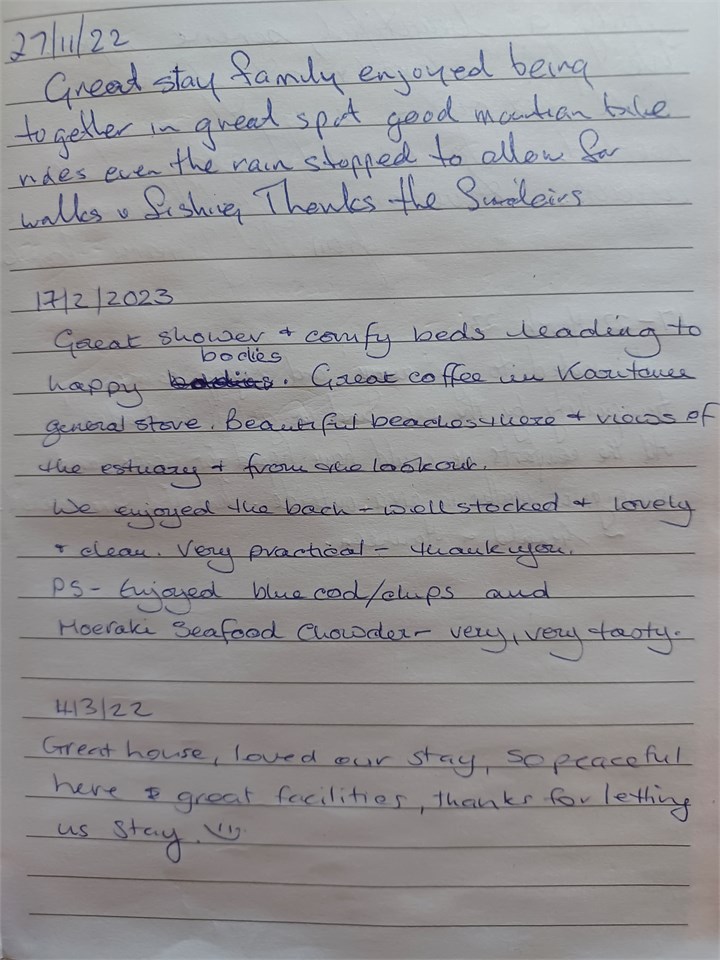 27/11/22
Great stay family enjoyed being
together in great spot good mountian bike
rides even the rain stopped to allow for
walks & fishing Thanks the
17/2/2023
Great shower + comfy beds leading to
bodies
happy . Great coffee in Karitane
general store. Beautiful beaches here + views of
the estuary + from the lookout.
We enjoyed the bach - well stocked + lovely
+ clean. Very practical - thank you.
PS - Enjoyed blue cod/chips and
Moeraki Seafood Chowder - very, very tasty.
4/3/22
Great house, loved our stay, so peaceful
here & great facilities, thanks for letting
us stay.